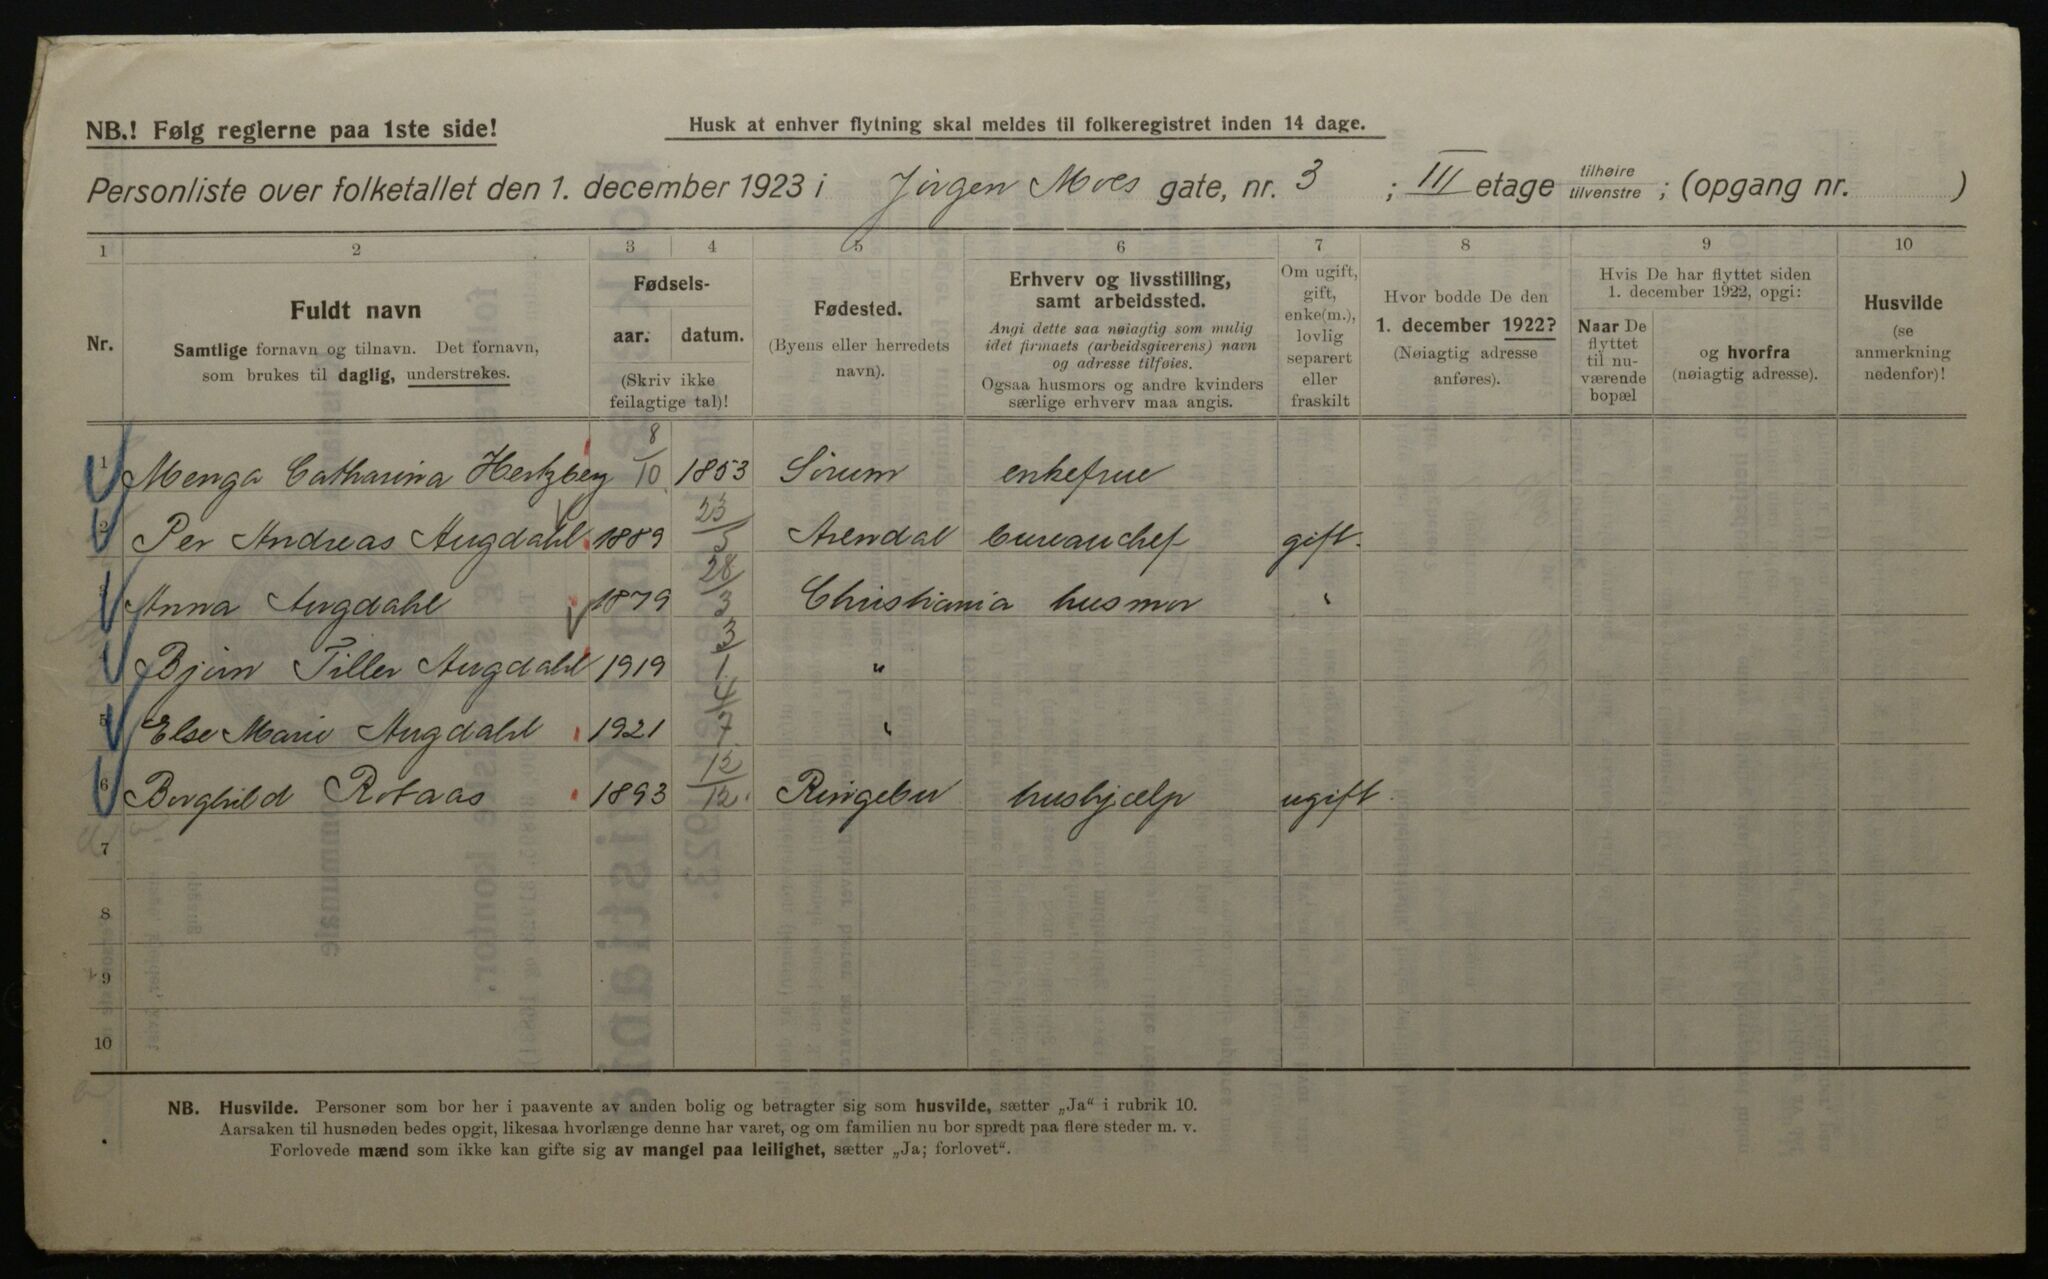 NB.! Følg reglerne paa 1ste side!
Husk at enhver flytning skal meldes til folkeregistret inden 14 dage.
Personliste over folketallet den 1. december 1923 i Jörgen Moes gate, nr. 3 ; III etage tilhøire tilvenstre ; (opgang nr. )
1 2 3 4 5 6 7 8 9 10
Nr.
Fuldt navn
Samtlige fornavn og tilnavn. Det fornavn,
som brukes til daglig, understrekes.
Fødsels-
aar. datum.
(Skriv ikke
feilagtige tal)!
Fødested.
(Byens eller herredets
navn).
Erhverv og livsstilling,
samt arbeidssted.
Angi dette saa nøiagtig som mulig
idet firmaets (arbeidsgiverens) navn
og adresse tilføies.
Ogsaa husmors og andre kvinders
særlige erhverv maa angis.
Om ugift,
gift,
enke(m.),
lovlig
separert
eller
fraskilt
Hvor bodde De den
1. december 1922?
(Nøiagtig adresse
anføres).
Hvis De har flyttet siden
1. december 1922, opgi:
Naar De
flyttet
til nu-
værende
bopæl
og hvorfra
(nøiagtig adresse).
Husvilde
(se
anmerkning
nedenfor)!
1 Menga Catharina Hertzberg 8/10 1853 Sörum enkefrue
2 Per Andreas Augdahl 1889 23/3 Arendal bureauchef gift.
3 Anna Augdahl 1879 28/3 Christiania husmor "
4 Björn Tiller Augdahl 1919 3/1 "
5 Else Marie Augdahl 1921 4/7 "
6 Borghild Rotaas 1893 12/12. Ringebu hushjælp ugift.
7
8
9
10
NB. Husvilde. Personer som bor her i paavente av anden bolig og betragter sig som husvilde, sætter „Ja“ i rubrik 10.
Aarsaken til husnøden bedes opgit, likesaa hvorlænge denne har varet, og om familien nu bor spredt paa flere steder m. v.
Forlovede mænd som ikke kan gifte sig av mangel paa leilighet, sætter „Ja; forlovet“.